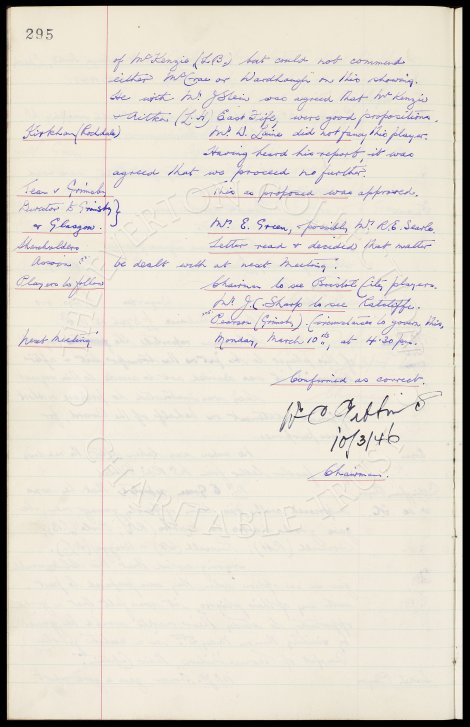 295
of McKenzie (L.B.) but could not commend
either McCrae or Wardhaugh on this showing.
He with Mr. J. Stein was agreed that McKenzie
& Aitken (L.H) East Fife, were good propositions.
Kirkham (Rochdale) Mr. D. did not fancy this player.
Having heard his report, it was
agreed that we proceed no further.
Team v Grimsby This as proposed was approved.
Director to Grimsby
or Glasgow. Mr. E. Green, & possibly Mr. R.E. Searle.
Shareholders Letter read & decided that matter
be dealt with at next Meeting.
Players to follow Chairman to see Bristol City players.
Mr. J.C. Sharp to see Ratcliffe.
Pearson (Grimsby). Circumstances to govern this.
Next Meeting Monday, March 10th, at 4.30 pm.
Confirmed as correct.
10/3/46
Chairman.
THE EVERTON
CHARITABLE TRUST